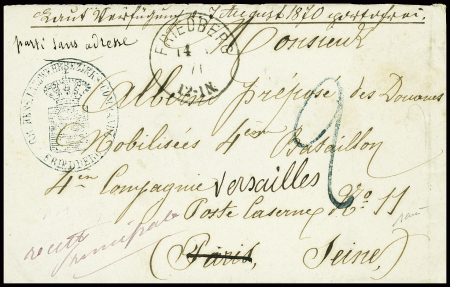 Laut Verfügung v. 7 August 1870 portofrei.
parti sans adresse
FRIEDBERG
4
71
12-1N
Monsieur
Alberne Préposé des Douanes
Mobilisées 4em Bataillon
4em Compagnie Versailles
Poste Caserne No 11
(Paris, Seine)
route
principale
2
FRIEDBERG